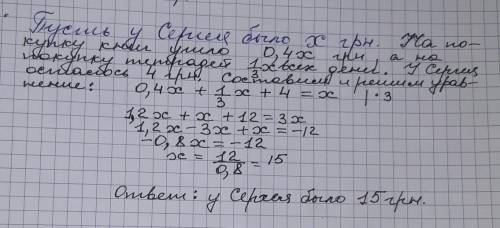 Пусть у Сергея было x грн. На по-
купку книг ушло 0,4x грн а на
покупку тетрадей 1/3 x всех денег. У Сергея
осталось 4 грн. Составим и решим урав-
нение:
0,4x + 1/3 x + 4 = x | · 3
1,2x + x + 12 = 3x
1,2x - 3x + x = -12
-0,8x = -12
x = 12/0,8 = 15
Ответ: у Сергея было 15 грн.